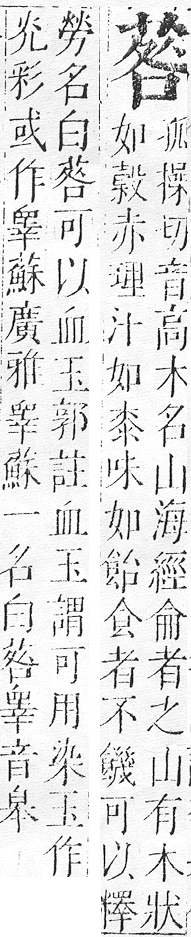 䓘
孤操切音高木名山海經侖者之山有木狀
如穀赤理汁如桼味如飴食者不饑可以釋
勞名白䓘可以血玉郭註血玉謂可用染玉作
光彩或作睾蘇廣雅睾蘇一名白䓘睾音皋